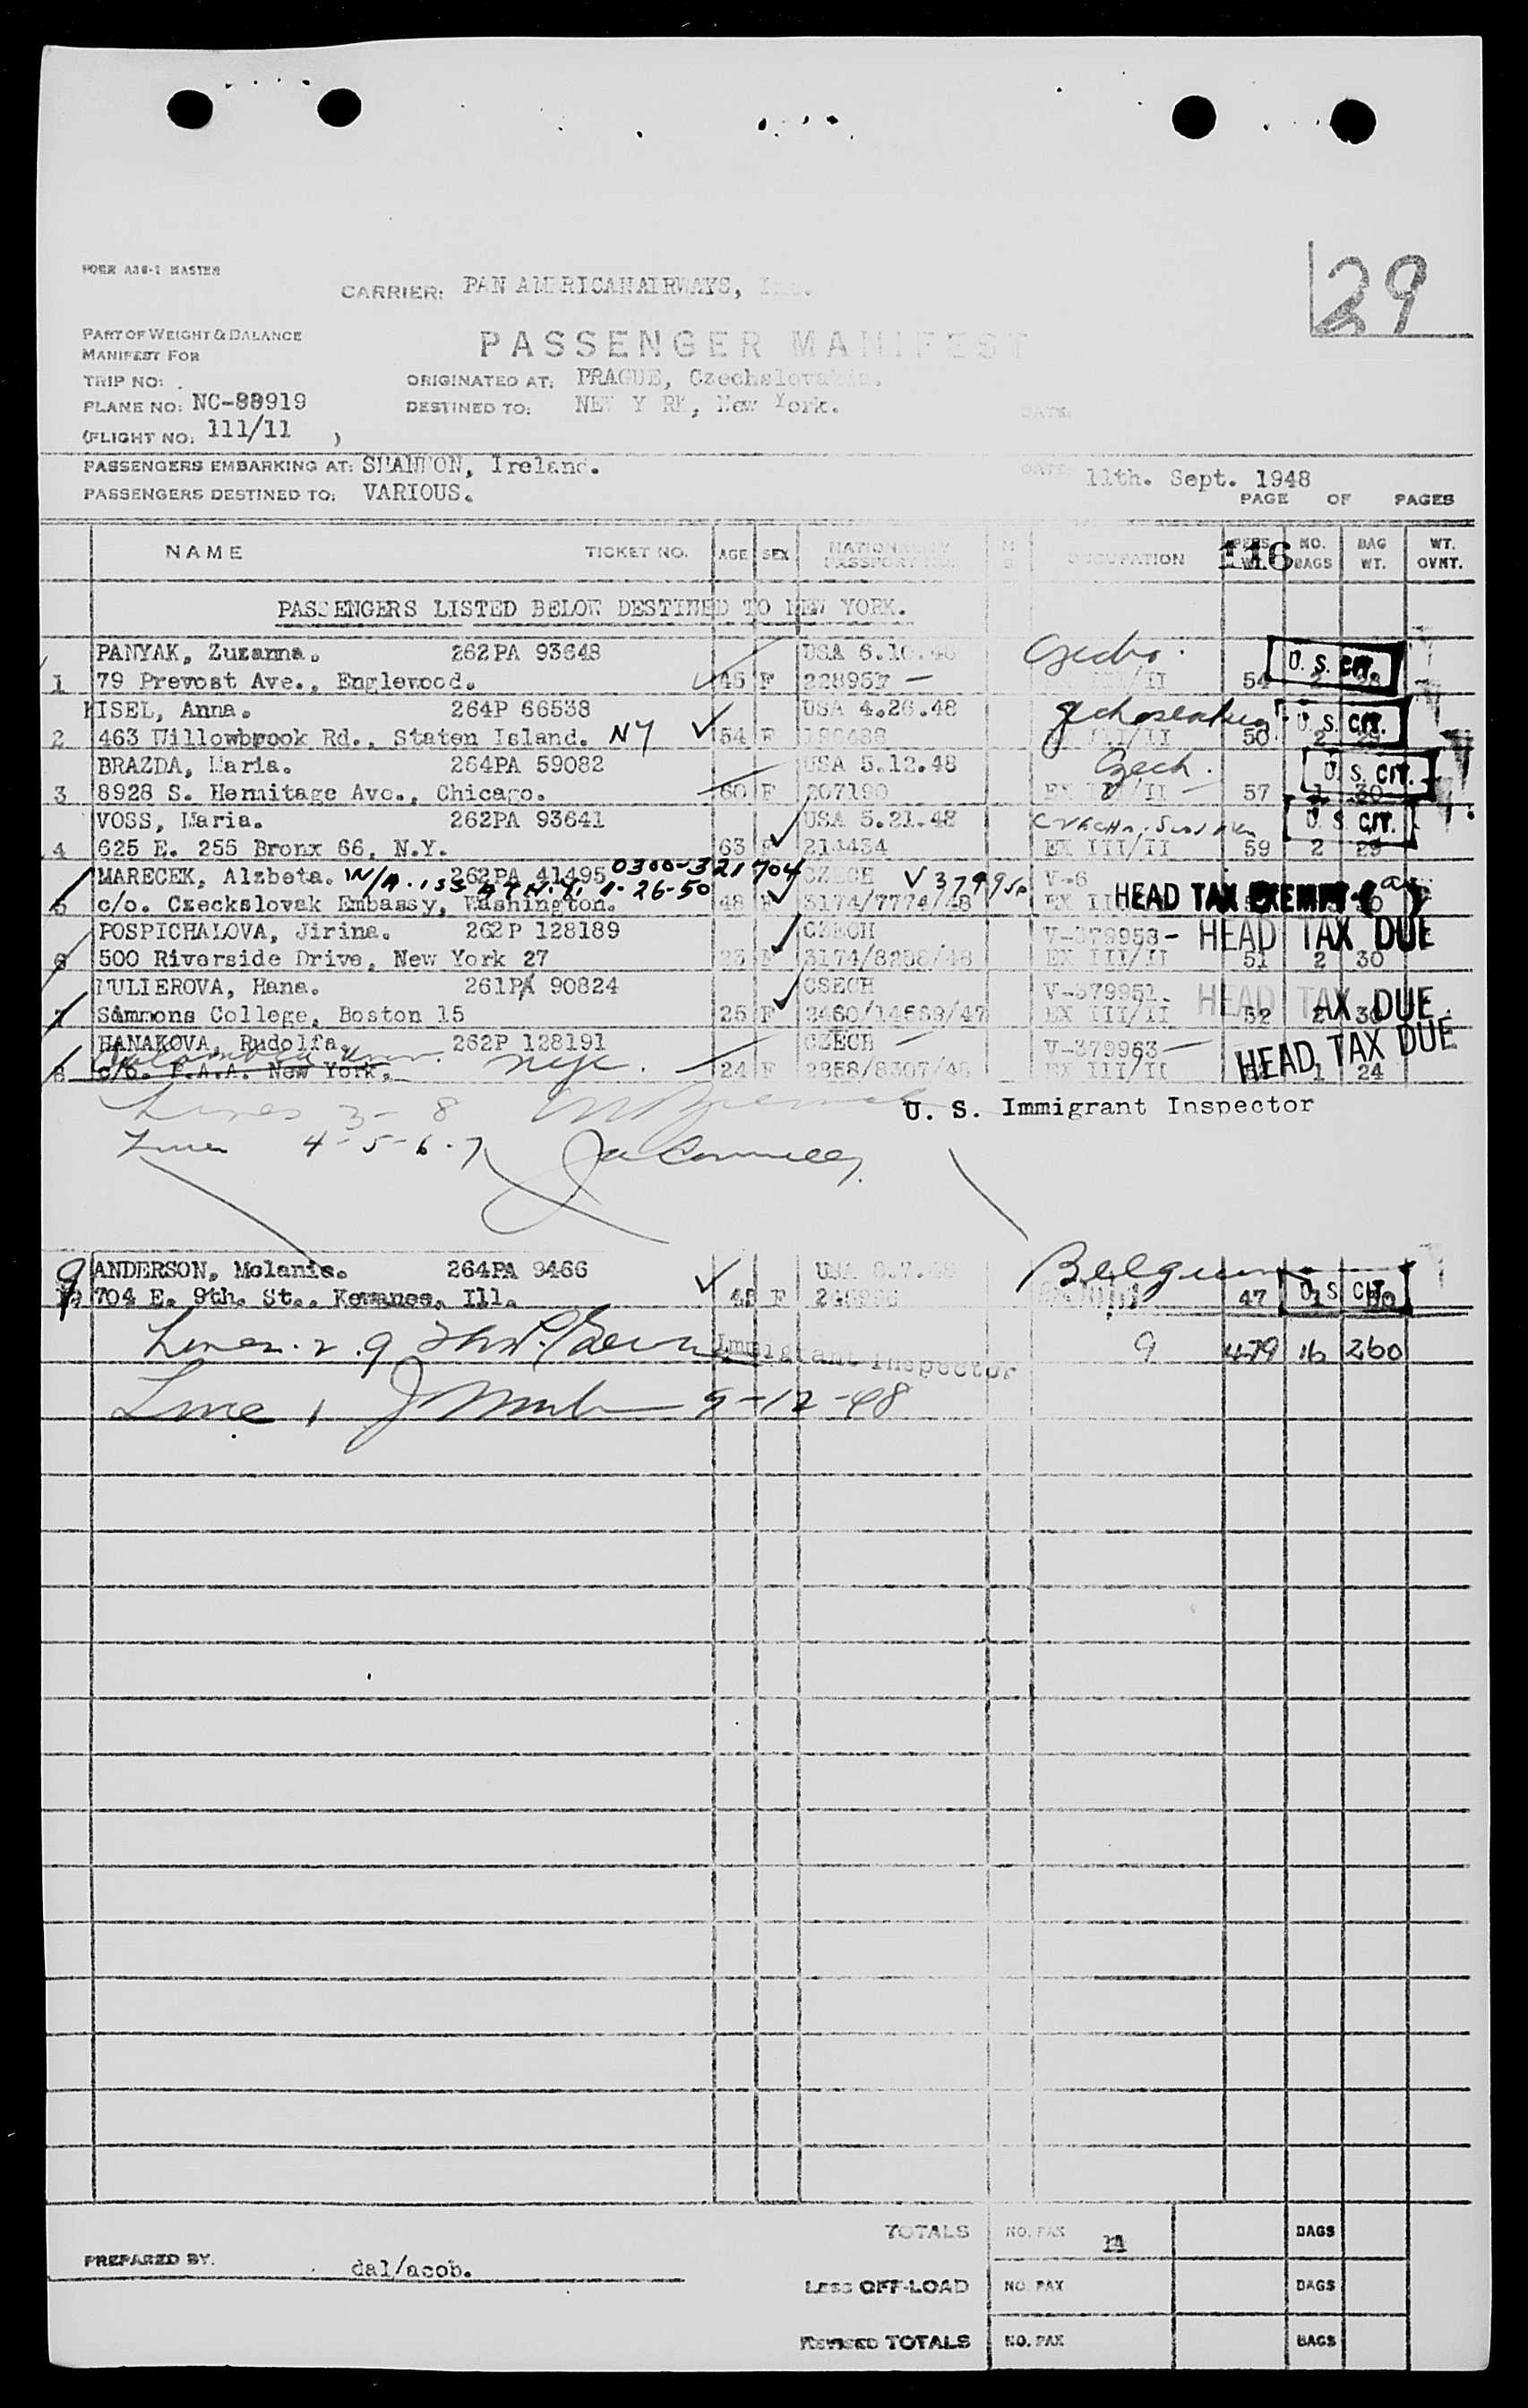 FORM A36-1 MASTER
29
CARRIER: PAN AMERICANAIRWAYS, Inc.
PART OF WEIGHT & BALANCE
MANIFEST FOR
PASSENGER MANIFEST
TRIP NO:
ORIGINATED AT: PRAGUE, Czechslovakia.
PLANE NO: NC-88919
DESTINED TO: NEW Y RK, New York.
DATE:
(FLIGHT NO: 111/11 )
PASSENGERS EMBARKING AT: SHANNON, Ireland.
DATE: 11th. Sept. 1948
PASSENGERS DESTINED TO: VARIOUS.
PAGE OF PAGES
NAME TICKET NO. AGE SEX NATIONALITY PASSPORT NO. OCCUPATION PERS. WT. NO. BAGS BAG WT. WT. OVHT.
116
PASSENGERS LISTED BELOW DESTINED TO NEW YORK.
PANYAK, Zuzanna. 262PA 93648 USA 6.10.48 Czecho. U. S. CIT.
1 79 Prevost Ave., Englewood. 45 F 54 2
KISEL, Anna. 264P 66538 USA 4.26.48 U. S. CIT.
2 463 Willowbrook Rd., Staten Island. NY 54 F 50 2
BRAZDA, Maria. 264PA 59082 USA 5.12.48 Czech. U. S. CIT.
3 8928 S. Hermitage Ave., Chicago. 60 F 207190 57 1 30
VOSS, Maria. 262PA 93641 USA 5.21.48 U. S. CIT.
4 625 E. 255 Bronx 66, N.Y. 63 F EX III/II 59 2
MARECEK, Alzbeta. W/A. iss AT N.Y. 1-26-50 262PA 41495 0300-321704 CZECH V-6 HEAD TAX EXEMPT
5 c/o. Czeckslovak Embassy, Washington. 48 F 3174/7774/48
POSPICHALOVA, Jirina. 262P 128189 CZECH V-379953- HEAD TAX DUE
6 500 Riverside Drive, New York 27 23 F 3174/8258/48 EX III/II 51 2 30
MULIEROVA, Hana. 261PA 90824 CSECH V-379951. HEAD TAX DUE
7 Simmons College, Boston 15 25 F EX III/II 52 2 30
HANAKOVA, Rudolfa. 262P 128191 CZECH V-379963 HEAD TAX DUE
Columbia Univ. nyc.
8 c/o. P.A.A. New York. 24 F 2958/8307/48 EX III/II 1 24
Lines 3- 8 U. S. Immigrant Inspector
Lines 4-5-6-7
9 ANDERSON, Melanie. 264PA 9466 USA Belgium
704 E. 9th. St., Kewanee, Ill. 45 F 47 U. S. CIT.
Lines. 2. 9 Immigrant Inspector 9 479 16 260
Line 1 9-12-48
TOTALS NO. PAX 14 BAGS
PREPARED BY. dal/acob.
LESS OFF-LOAD NO. PAX BAGS
REVISED TOTALS NO. PAX BAGS